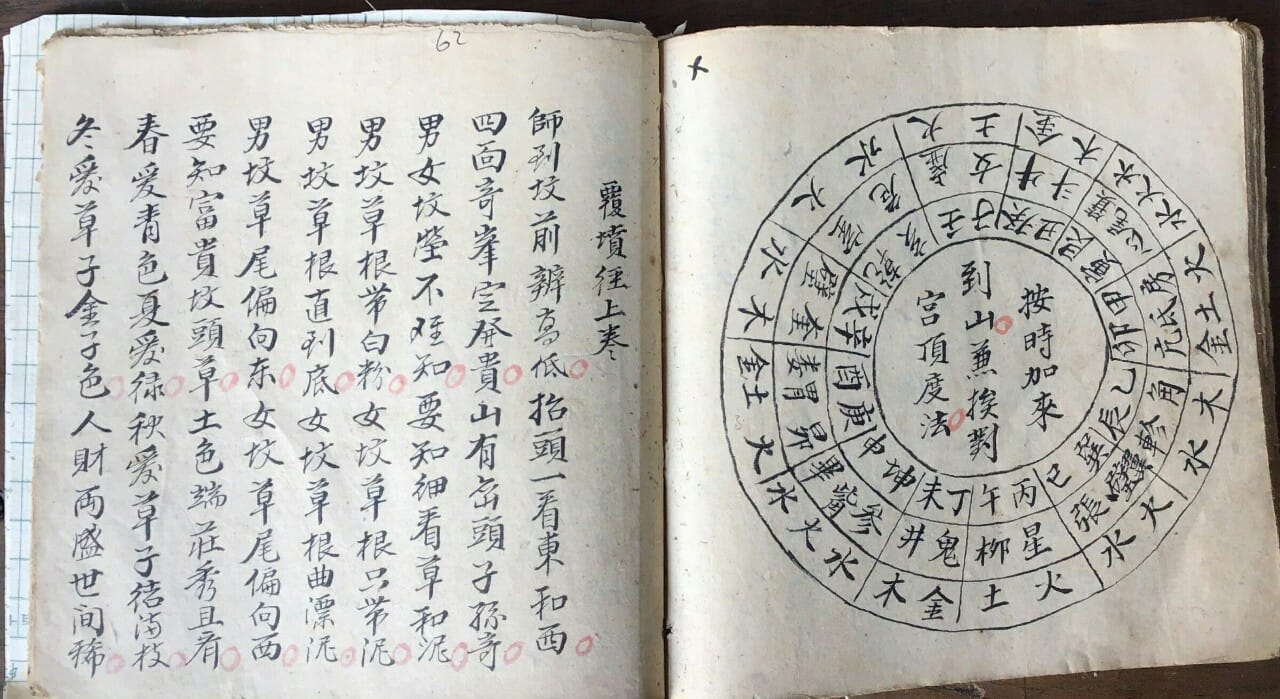 62
覆墳徑上卷
師到坟前辨高低抬頭一看東和西
四面奇峯定癹貴山有峦頭子孫奇
男女坟塋不难知要知细看草和泥
男坟草根带白粉女坟草根只带泥
男坟草根直到底女坟草根曲漂泥
男坟草尾偏向东女坟草尾偏向西
要知富貴坟頭草土色端莊秀且有
春爱青色夏爱緑秋爱草子结满枝
冬爱草子金子色人財两盛世间稀
按時加來
到山兼挨對
宮頂度法
壬子癸丑艮寅甲卯乙辰巽巳丙午丁未坤申庚酉辛戌乾亥
虚女牛斗箕尾心房氐亢角軫翼張星柳鬼井參觜畢昴胃婁奎壁室危
火土金木水火水火土金木水火水火土金木水火水火土金木水火水